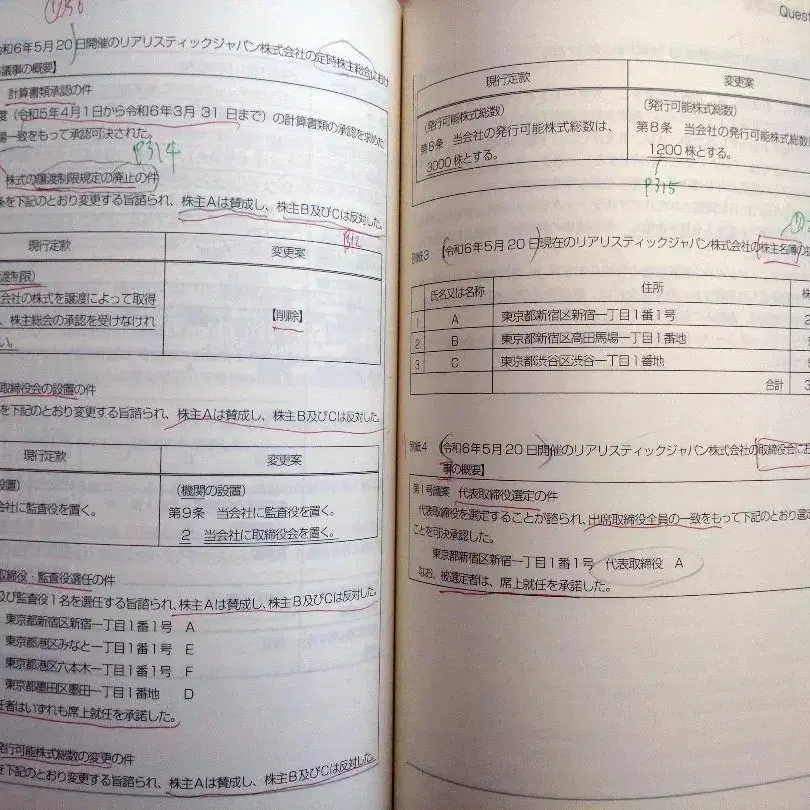 令和6年5月20日開催のリアリスティックジャパン株式会社の定時株主総会におけ
議事の概要】
計算書類承認の件
度(令和5年4月1日から令和6年3月31日まで)の計算書類の承認を求めた
場一致をもって承認可決された。
P314
株式の譲渡制限規定の廃止の件
を下記のとおり変更する旨諮られ、株主Aは賛成し、株主B及びCは反対した。
P312
現行定款
変更案
渡制限)
会社の株式を譲渡によって取得
、株主総会の承認を受けなけれ
い。
【削除】
取締役会の設置の件
を下記のとおり変更する旨諮られ、株主Aは賛成し、株主B及びCは反対した。
現行定款
変更案
設置)
会社に監査役を置く。
(機関の設置)
第9条 当会社に監査役を置く。
2 当会社に取締役会を置く。
取締役・監査役選任の件
及び監査役1名を選任する旨諮られ、株主Aは賛成し、株主B及びCは反対した。
東京都新宿区新宿一丁目1番1号 A
東京都港区みなと一丁目1番1号 E
東京都港区六本木一丁目1番1号 F
東京都墨田区墨田一丁目1番地 D
任者はいずれも席上就任を承諾した。
発行可能株式総数の変更の件
を下記のとおり変更する旨諮られ、株主Aは賛成し、株主B及びCは反対した。
Quest
現行定款
変更案
(発行可能株式総数)
第8条 当会社の発行可能株式総数は、
3000株とする。
(発行可能株式総数)
第8条 当会社の発行可能株式総数
1200株とする。
P315
別紙3 【令和6年5月20日現在のリアリスティックジャパン株式会社の株主名簿の
氏名又は名称
住所
株
1 A 東京都新宿区新宿一丁目1番1号
2 B 東京都新宿区高田馬場一丁目1番地
3 C 東京都渋谷区渋谷一丁目1番地
合計
別紙4 【令和6年5月20日開催のリアリスティックジャパン株式会社の取締役会にお
事の概要】
第1号議案 代表取締役選定の件
代表取締役を選定することが諮られ、出席取締役全員の一致をもって下記のとおり選定
ことを可決承認した。
東京都新宿区新宿一丁目1番1号 代表取締役 A
なお、被選定者は、席上就任を承諾した。